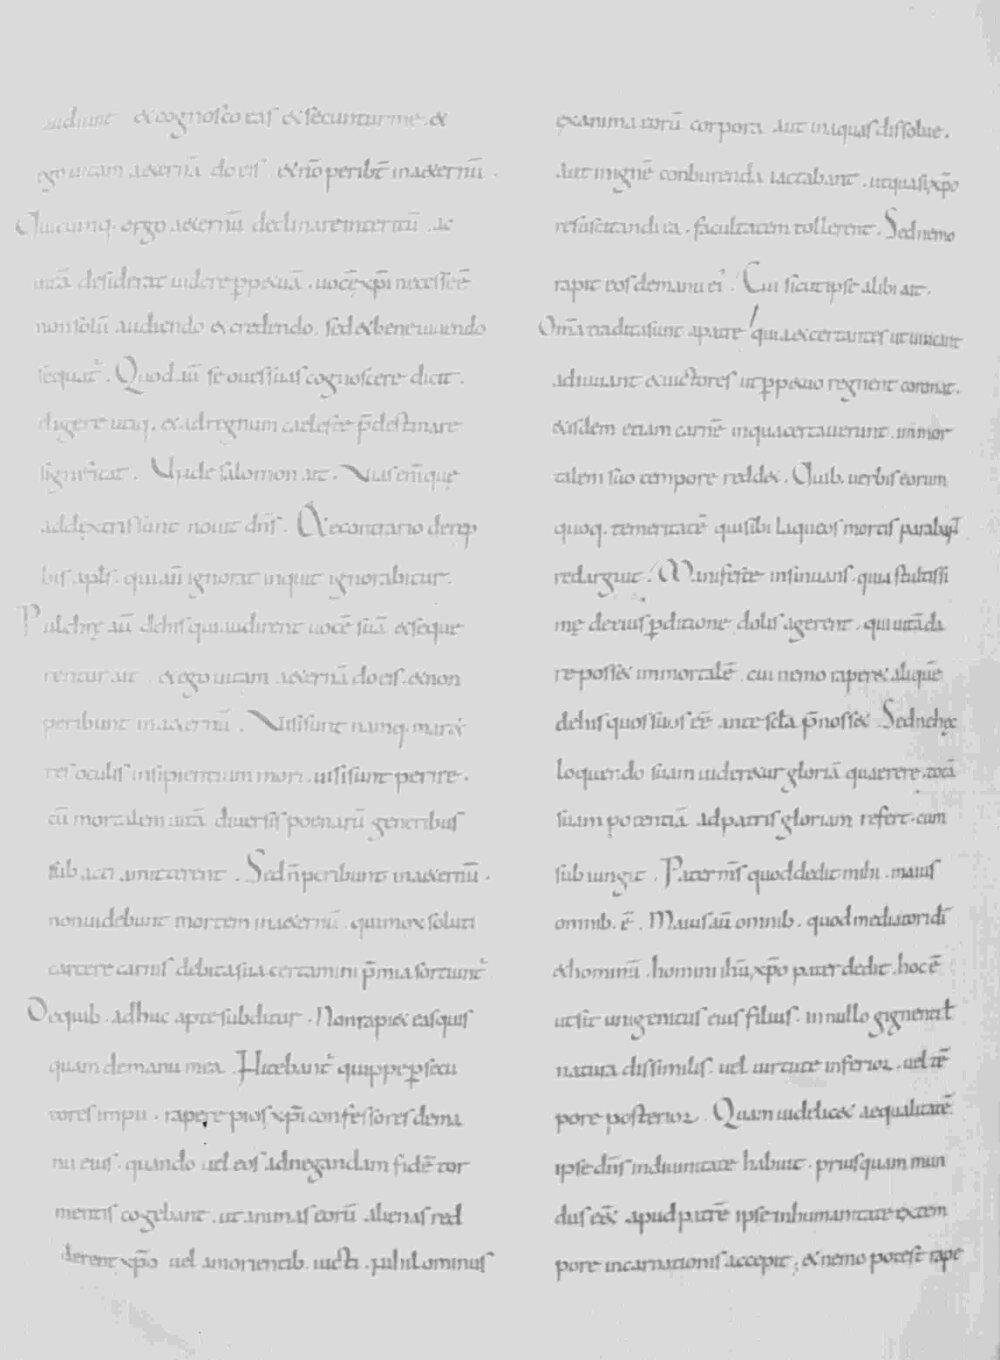 audiunt & cognosco eas & secuntur me. &
ego uitam aeternā do eis. & nō peribt̄ in aeternū.
Quicumq. ergo aeternū declinare interitū. ac
uitā desiderat uidere ꝑpetuā. uocē xp̄i necesse ē
non solū audiendo & credendo. sed & bene uiuendo
sequat̄. Quod aū se oues suas cognoscere dicit.
eligere utiq. & ad regnum caeleste p̄destinare
significat. Unde salomon ait. Uias enī que
a dextris sunt nouit dn̄s. At e contrario de rep
bis apl̄s. qui aū ignorat inquit ignorabitur.
Pulchrę aū de his qui audirent uocē suā & seque
rentur ait. & ego uitam aeternā do eis. & non
peribunt in aeternū. Uisi sunt namq. marty
res oculis insipientium mori. uisi sunt perire.
cū mortalem uitā diuersis poenarū generibus
subacti amitterent. Sed n̄ peribunt in aeternū.
non uidebunt mortem in aeternū. qui mox soluti
carcere carnis debita sua certamini p̄mia sortiunt̄
De quib. adhuc apte subditur. Non rapiet eas quis
quam de manu mea. Nitebant̄ quippe ꝑsecu
tores impii. rapere pios xp̄i confessores de ma
nu eius. quando uel eos ad negandam fidē tor
mentis cogebant. ut animas eorū alienas red
derent xp̄o uel a morientib. uicti. nihilominus
exanimatorū corpora aut in aquas dissolue.
aut in ignē conburenda iactabant. ut quasi xp̄o
resuscitandi ea. facultatem tollerent. Sed nemo
rapit eos de manu ei'. Cui sicut ipse alibi ait.
Om̄a tradita sunt a patre quia & certantes ut uincant
adiuuant & uictores ut ꝑpetuo regnent coronat.
& isdem etiam carnē in qua certauerunt. inmor
talem suo tempore reddet. Quib. uerbis eorum
quoq. temeritatē qui sibi laqueos mortis parabant
redarguit. Manifeste insinuans. quia stultissi
mę de eius ꝑditione dolis agerent. qui uitā da
re posset inmortalē. cui nemo raperet aliquē
de his quos suos eē ante scl̄a p̄nosset. Sed ne hęc
loquendo suam uideretur gloriā quaerere. totā
suam potentiā ad patris gloriam refert. cum
subiungit. Pater m̄s quod dedit mihi. maius
omnib. ē. Maius aū omnib. quod mediatori dī
& hominū. homini ihū xp̄o pater dedit. hoc ē
ut sit unigenitus eius filius. in nullo gignenti t̄
natura dissimilis. uel uirtute inferior. uel tē
pore posterior. Quam uidelicet aequalitatē
ipse dn̄s in diuinitate habuit. priusquam mun
dus eēt apud patrē ipse in humanitate ex tem
pore incarnationis accepit. & nemo potest rape